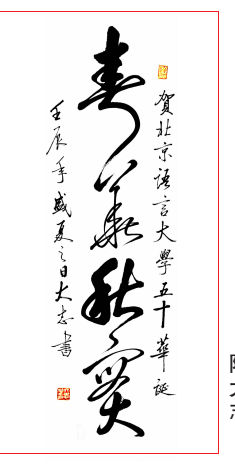 賀北京语言大學五十華誕
春華秋實
壬辰年盛夏之日大志書